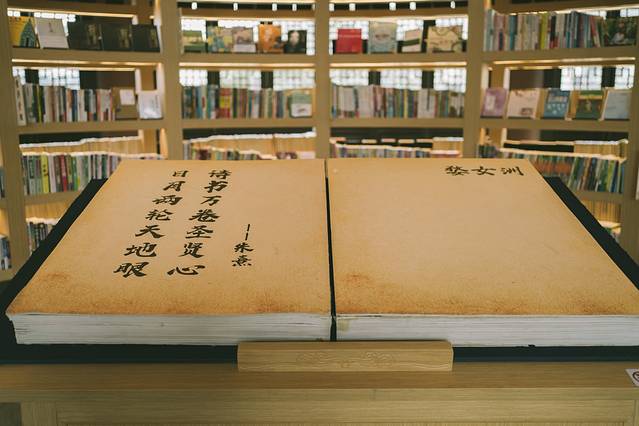 日月两轮天地眼
诗书万卷圣贤心
——朱熹
婺女洲